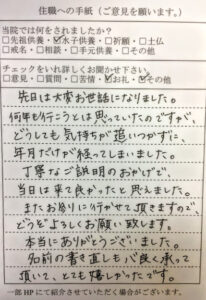 住職への手紙(ご意見を願います。)
当院では何をされましたか?
□先祖供養・☑水子供養・□祈願・□土仏
□戒名・□相談・□手元供養・□その他
チェックをいれ詳しくお聞かせ下さい。
□意見・□質問・□苦情・☑お礼・□その他
先日は大変お世話になりました。
何年も行こうとは思っていたのですが、
どうしても気持ちが追いつかずに、
年月だけが経ってしまいました。
丁寧なご説明のおかげで、
当日は来て良かったと思えました。
またお参りに行かせて頂きますので、
どうぞよろしくお願い致します。
本当にありがとうございました。
名前の書き直しも心良く承って
頂いて、とても嬉しかったです。
一部HPにて紹介させていただく場合がございます。